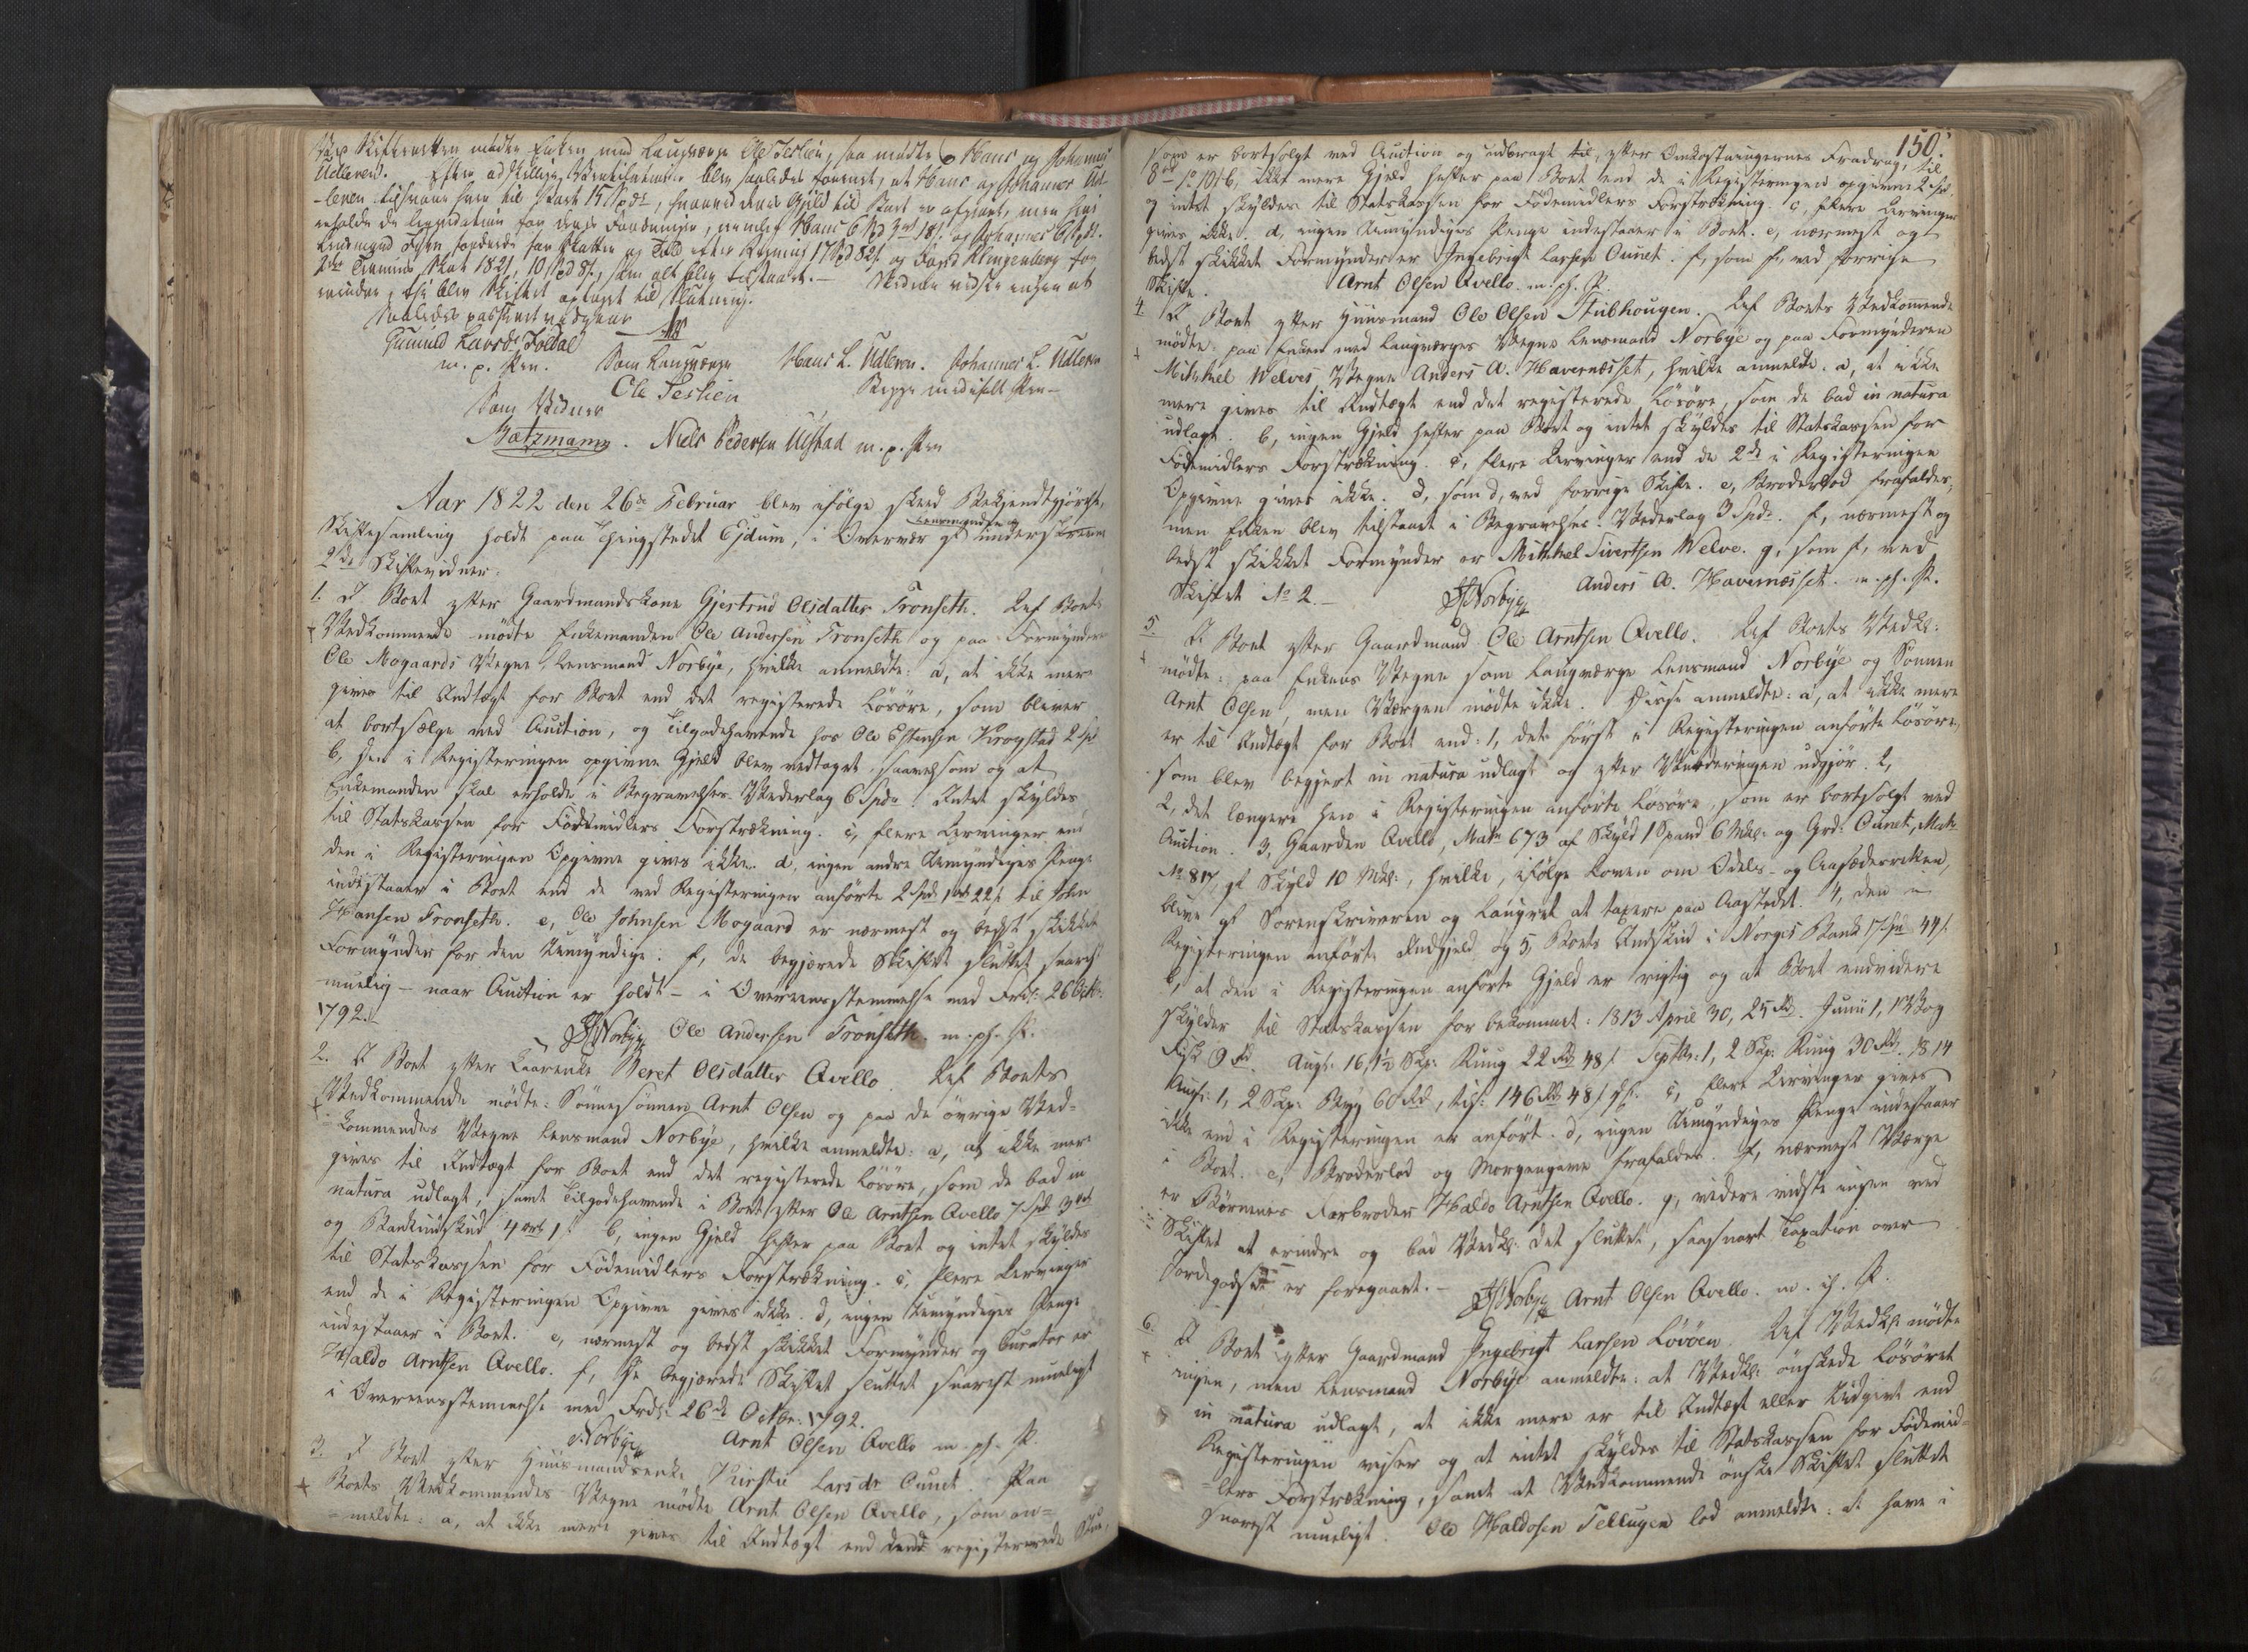 Ved Skifteretten mødte Enken med Laugværge Ole Jeslien, saa mødte Hans og Johannes
Udleren. Efter adskillig blev saaledes forenet, at Hans og Johannes Ud-
-leren tilsvarer hver til Boet 15 Spdr, hvorved deres Gjeld til Boet er afgjort, men hvis
for deres Fordringer, nemlig Hans 6 Spd 3 ort 18 s. og Johannes 6 Spd.
Lensmand fordrede for Skatter og Told efter Regning 17 Spd 82 s og Foged Klingenberg for
2den Termins Skat 1821, 10 Spd 8 s., som alt blev tilstaaet. — Videre vidste ingen at
erindre, thi blev Skiftet optaget til Slutning.
Saaledes passeret vidner
Gunnild Larsdr Foldal
m. p. Pen. Som Laugværge Hans L. Udleren. Johannes L. Udleren
Ole Jeslien Begge med ifølt Pen —
Som Vidner
Matzmann. Niels Pedersen Ulstad m. p. Pen
Aar 1822 den 26de Februar blev ifølge skeed Bekjendtgjørelse,
Skiftesamling holdt paa Thingstedet Ejdum, i Overvær af Lensmanden og underskrevne
2de Skiftevidner:
1. I Boet efter Gaardmandskone Gjertrud Olsdatter Fronseth. Af Boets
Vedkommende mødte Enkemanden Ole Andersen Fronseth og paa Formynder
Ole Mogaards Vegne Lensmand Norbye, hvilke anmeldte: a, at ikke mere
gives til Indtægt for Boet end det registerede Løsøre, som bliver
at bortsælge ved Auction, og Tilgodehavende hos Ole Estensen Krogstad 2 Spd
b, den i Registeringen opgivne Gjeld blev vedtaget saavelsom og at
Enkemanden skal erholde i Begravelses-Vederlag 6 Spdr. Intet skyldes
til Statskassen for Fødemidlers Forstrækning. c, flere Arvinger end
den i Registeringen Opgivne gives ikke. d, ingen andre Umyndiges Penge
indestaaer i Boet end de ved Registeringen anførte 2 Spd 1 ort 22 s. til John
Hansen Fronseth. e, Ole Johnsen Mogaard er nærmest og bedst skikket
Formynder for den Umyndige. f, de begjærede Skiftet sluttet snarest
muelig — naar Auction er holdt — i Overeensstemmelse med Frdg: 26 Octbr:
1792.
Norbye Ole Andersen Fronseth. m. ph. P.
2. I Boet efter Kaarenke Beret Olsdatter Qvello. Af Boets
Vedkommende mødte: Sønnesønnen Arnt Olsen og paa de øvrige Ved-
kommendes Vegne Lensmand Norbye, hvilke anmeldte: a, at ikke mere
gives til Indtægt for Boet end det registerede Løsøre, som de bad in
natura udlagt, samt Tilgodehavende i Boet efter Ole Arntsen Qvello 7 Spd 3 ort
og Bankindskud 4 ort 1 s. b, ingen Gjeld hefter paa Boet og intet skyldes
til Statskassen for Fødemidlers Forstrækning. c, flere Arvinger
end de i Registeringen Opgivne gives ikke. d, ingen Umyndiges Penge
indestaaer i Boet. e, nærmest og bedst skikket Formynder og Curator er
Haldo Arntsen Qvello. f, de begjærede Skiftet sluttet snarest mueligt
i Overeensstemmelse med Frdg: 26de Octbr: 1792.
Norbye Arnt Olsen Qvello m. ph. P.
3. I Boet efter Huusmandsenke Kirstie Larsdr Ounet. Paa
Boets Vedkommendes Vegne mødte Arnt Olsen Qvello, som an-
-meldte: a, at ikke mere gives til Indtægt end registerede
150.
som er bortsolgt ved Auction og udbragt til, efter Omkostningernes Fradrag, til
ikke mere Gjeld hefter paa Boet end de i Registeringen opgivne 2 Spd.
og intet skyldes til Statskassen for Fødemidlers Forstrækning. c, flere Arvinger
gives ikke. d, ingen Umyndiges Penge indestaaer i Boet. e, nærmest og
bedst skikket Formynder er Ingebrigt Larsen Ounet. f, som f, ved forrige
Skifte. Arnt Olsen Qvello. m. ph. P.
4. I Boet efter Huusmand Ole Olsen Stubhougen. Af Boets Vedkommende
mødte: paa Enken med Laugværges Vegne Lensmand Norbye og paa Formynderen
Mikkel Welves Vegne Anders A. Havernæsset, hvilke anmeldte: a, at ikke
mere gives til Indtægt end det registerede Løsøre, som de bad in natura
udlagt. b, ingen Gjeld hefter paa Boet og intet skyldes til Statskassen for
Fødemidlers Forstrækning. c, flere Arvinger end de 2de i Registeringen
Opgivne gives ikke. d, som d, ved forrige Skifte. e, Broderlod frafaldes,
men Enken blev tilstaaet i Begravelses-Vederlag 3 Spdr. f, nærmest og
bedst skikket Formynder er Mikkel Sivertsen Welve. g, som f, ved
Skiftet No 2. — Norbye Anders A. Havernæsset. m. ph. P.
5. I Boet efter Gaardmand Ole Arntsen Qvello. Af Boets Vedk:
mødte: paa Enkens Vegne som Laugværge Lensmand Norbye og Sønnen
Arnt Olsen, men Værgen mødte ikke. Disse anmeldte: a, at ikke mere
er til Indtægt for Boet end: 1, det først i Registeringen anførte Løsøre,
som blev begjert in natura udlagt og efter Vurderingen udgjør. 2,
2, det længere hen i Registeringen anførte Løsøre, som er bortsolgt ved
Auction. 3, Gaarden Qvello, Matr 673 af Skyld 1 Spand 6 Mkl: og Grd: Ounet, Matr
No 817, af Skyld 10 Mkl:, hvilke, ifølge Loven om Odels- og Aasædesretten,
blive af Sorenskriveren og Laugret at taxere paa Aastedet. 4, den i
Registeringen anførte Indgjeld, og 5, Boets Indskud i Norges Bank 17 Spd 44 s.
b, at den i Registeringen anførte Gjeld er rigtig og at Boet endvidere
skylder til Statskassen for bekommet: 1813 April 30, 25 Rd. Junii 1, 1 Vog
Fisk 9 Rd. Augt: 16, 1½ Skp: Rug 22 Rd 48 s. Septbr: 1, 2 Skp: Rug 30 Rd. 1814
Augt: 1, 2 Skp: Byg 60 Rd, tils: 146 Rd 48 s. c, flere Arvinger gives
ikke end i Registeringen er anført. d, ingen Umyndiges Penge indestaaer
i Boet. e, Broderlod og Morgengave frafaldes. f, nærmest Værge
er Børnenes Farbroder Haldo Arntsen Qvello. g, videre vidste ingen ved
Skiftet at erindre og bad Vedk: det sluttet, saasnart Taxation over
Jordegodset er foregaaet. — Norbye Arnt Olsen Qvello. m. ph. P.
6. I Boet efter Gaardmand Ingebrigt Larsen Løvøen. Af Vedk: mødte
ingen, men Lensmand Norbye anmeldte: at Vedk: ønskede Løsøret
in natura udlagt, at ikke mere er til Indtægt eller Udgivt end
Registeringen viser og at intet skyldes til Statskassen for Fødemid-
-lers Forstrækning, samt at Vedkommende ønske Skiftet sluttet
snarest mueligt. Ole Haldosen Tellugen lod anmelde: at have i